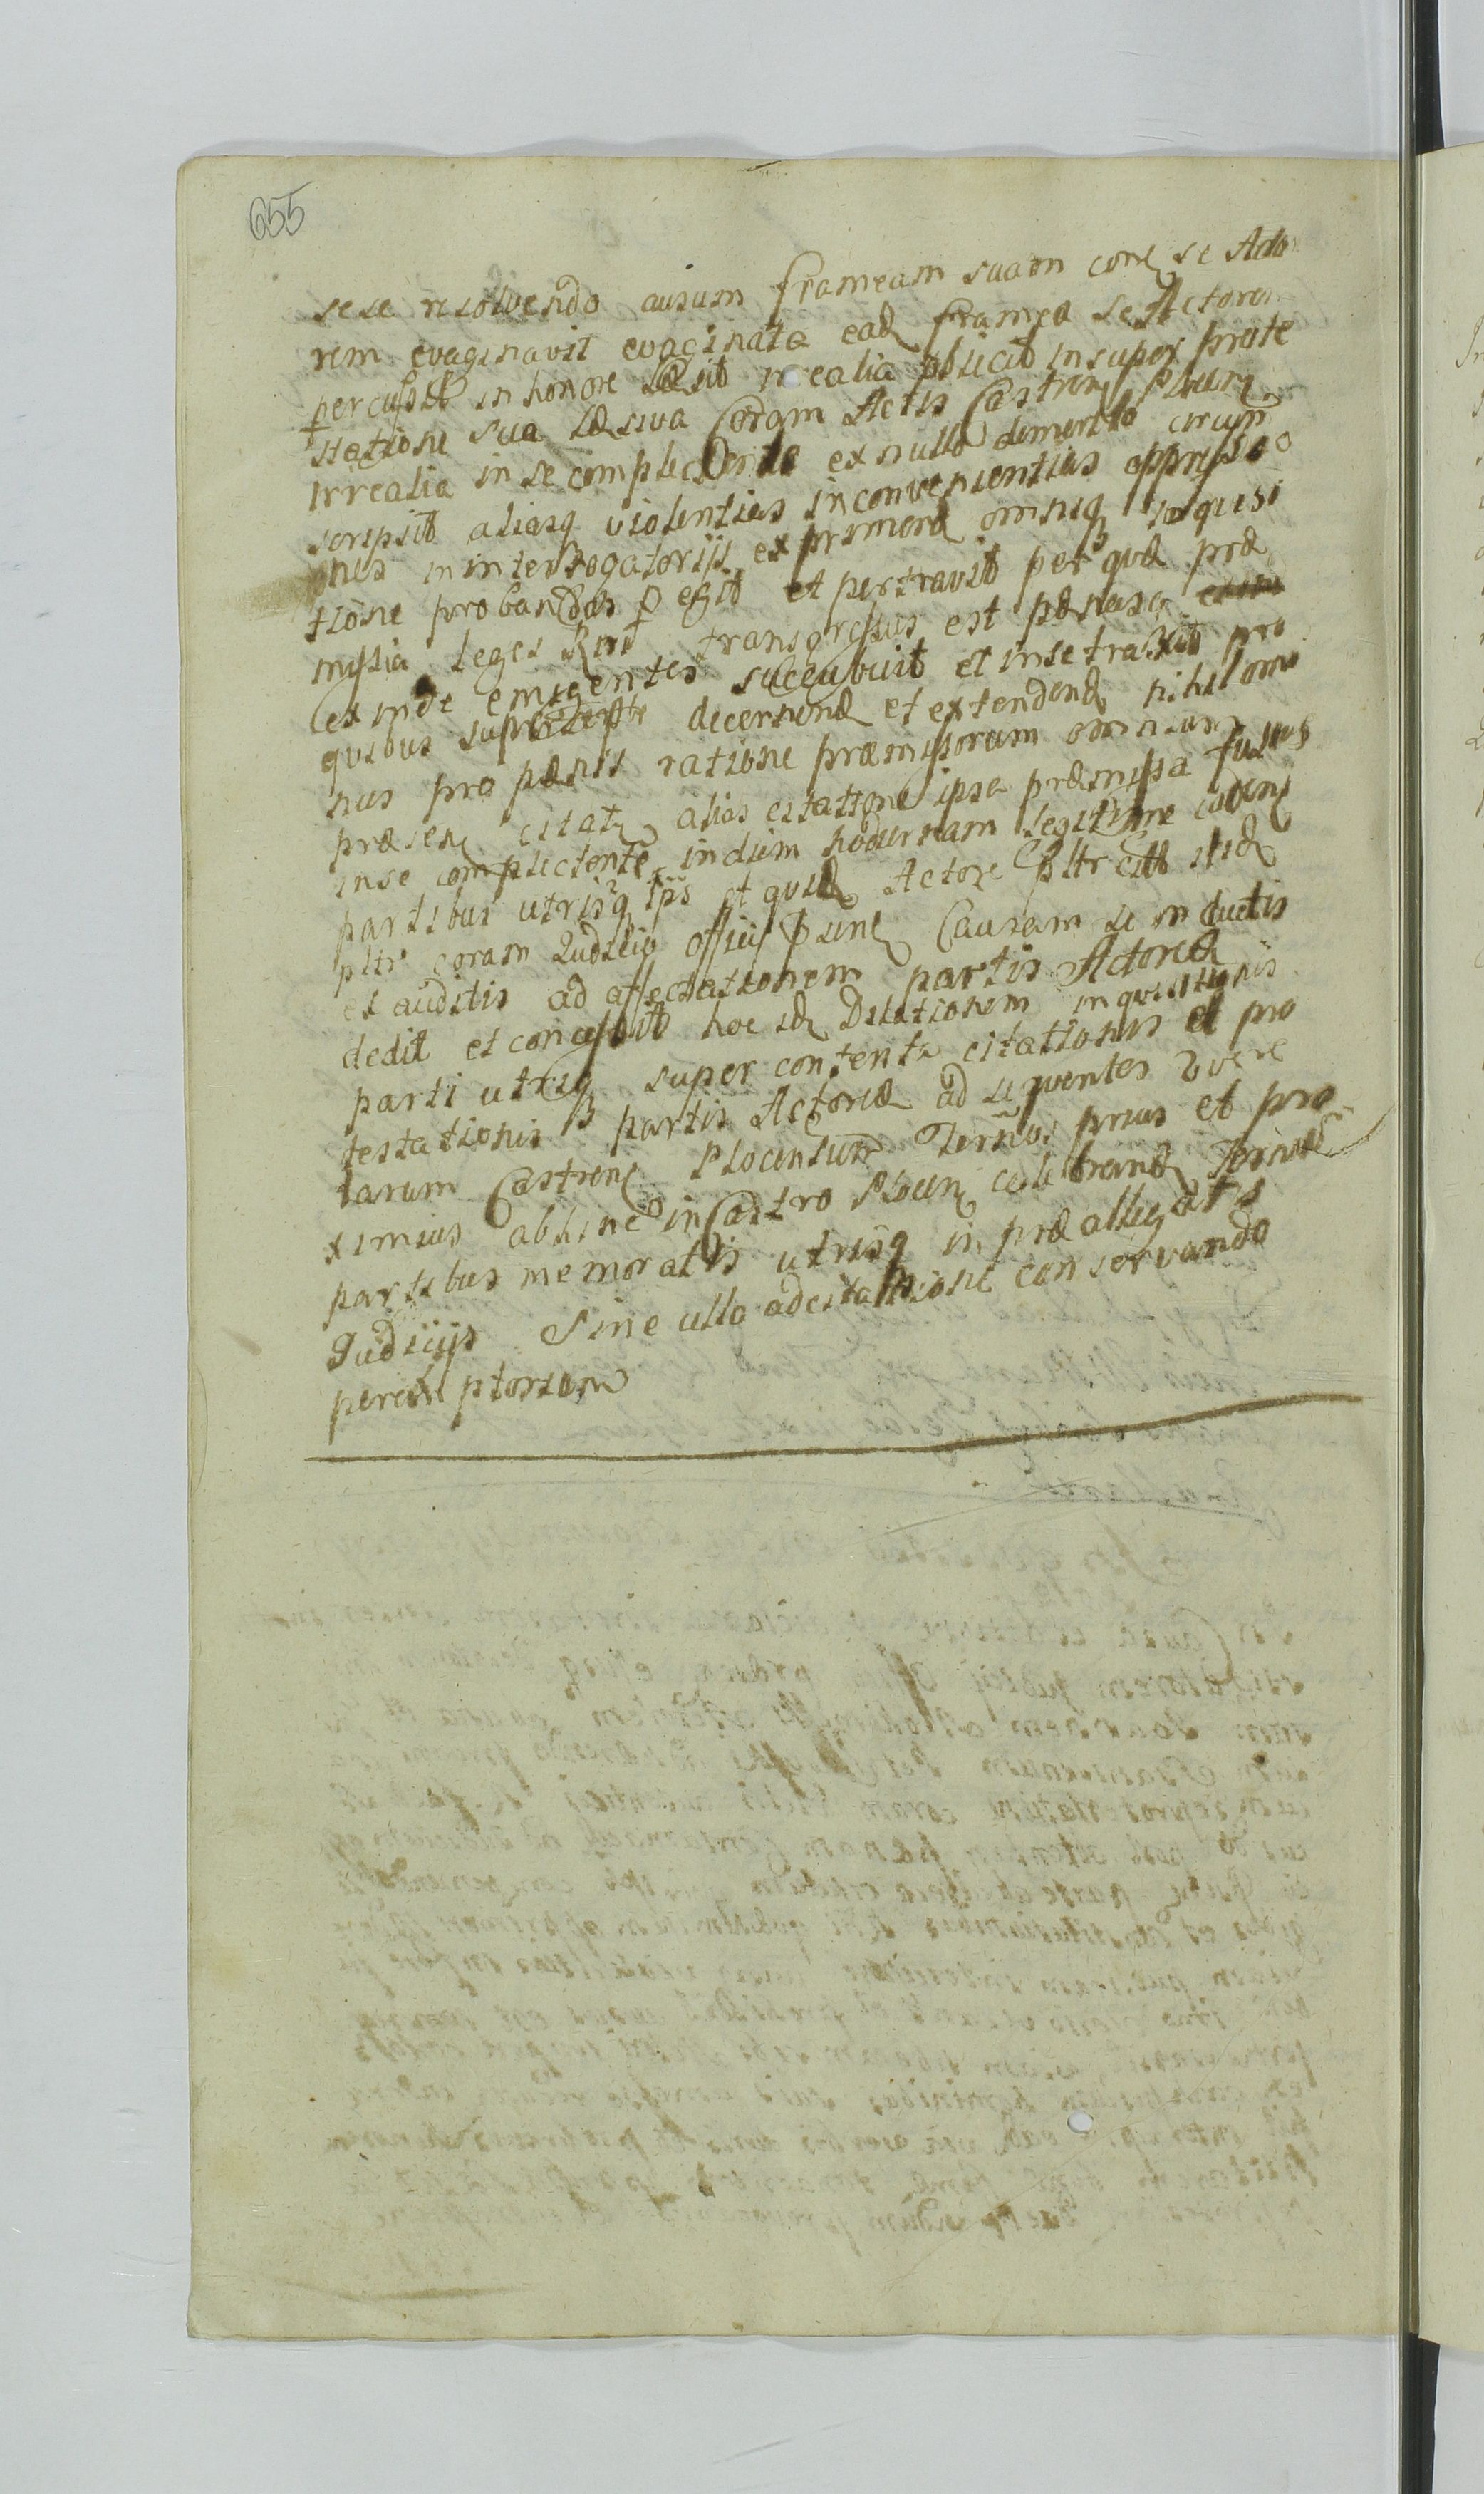 655
sese resolvendo ausum frameam suam cone se Acto
rem evaginavit evaginata ead framea se Actorem
percussit in honore læsit irrealia obiecit insuper prote
statione sua læsiva Coram Actis Castren Plocen
irrealia in se complectente ex nullo demerito circum
scripsit aliasq violentias inconvenientias oppressio
ones in interrogatorijs exprimend omniq inquisi
tione probandas p egit et pertravit per quæ præ
missa leges Rni transgressus est pænasq
ex inde emergentes succubuit et in se traxit pro
quibus decernend et extendend nihilomi
nus pro pænis ratione præmissorum omnium
præsen citat alias citatione ipsa præmissa fusius
in se complectente in diem hodiernam legitime caden
partibus utrisq ipis et quid Actore pltr Citto itid
pltr coram Judicio officij psen Causam se inductis
et auditis ad affectationem partis Actoreæ
dedit et concessit hoc id Dilationem inquisitionis
parti utriq super contenta citationis et pro
testationis partis Actoreæ ad sequentes quere
larum Castren Plocensium Terños prius et pro
ximius abhinc in Castro Plocen celebrand Terñum
partibus memoratis utrisq in præallegatis
Judicijs Sine ulla adcitatione conservando
peremptorium